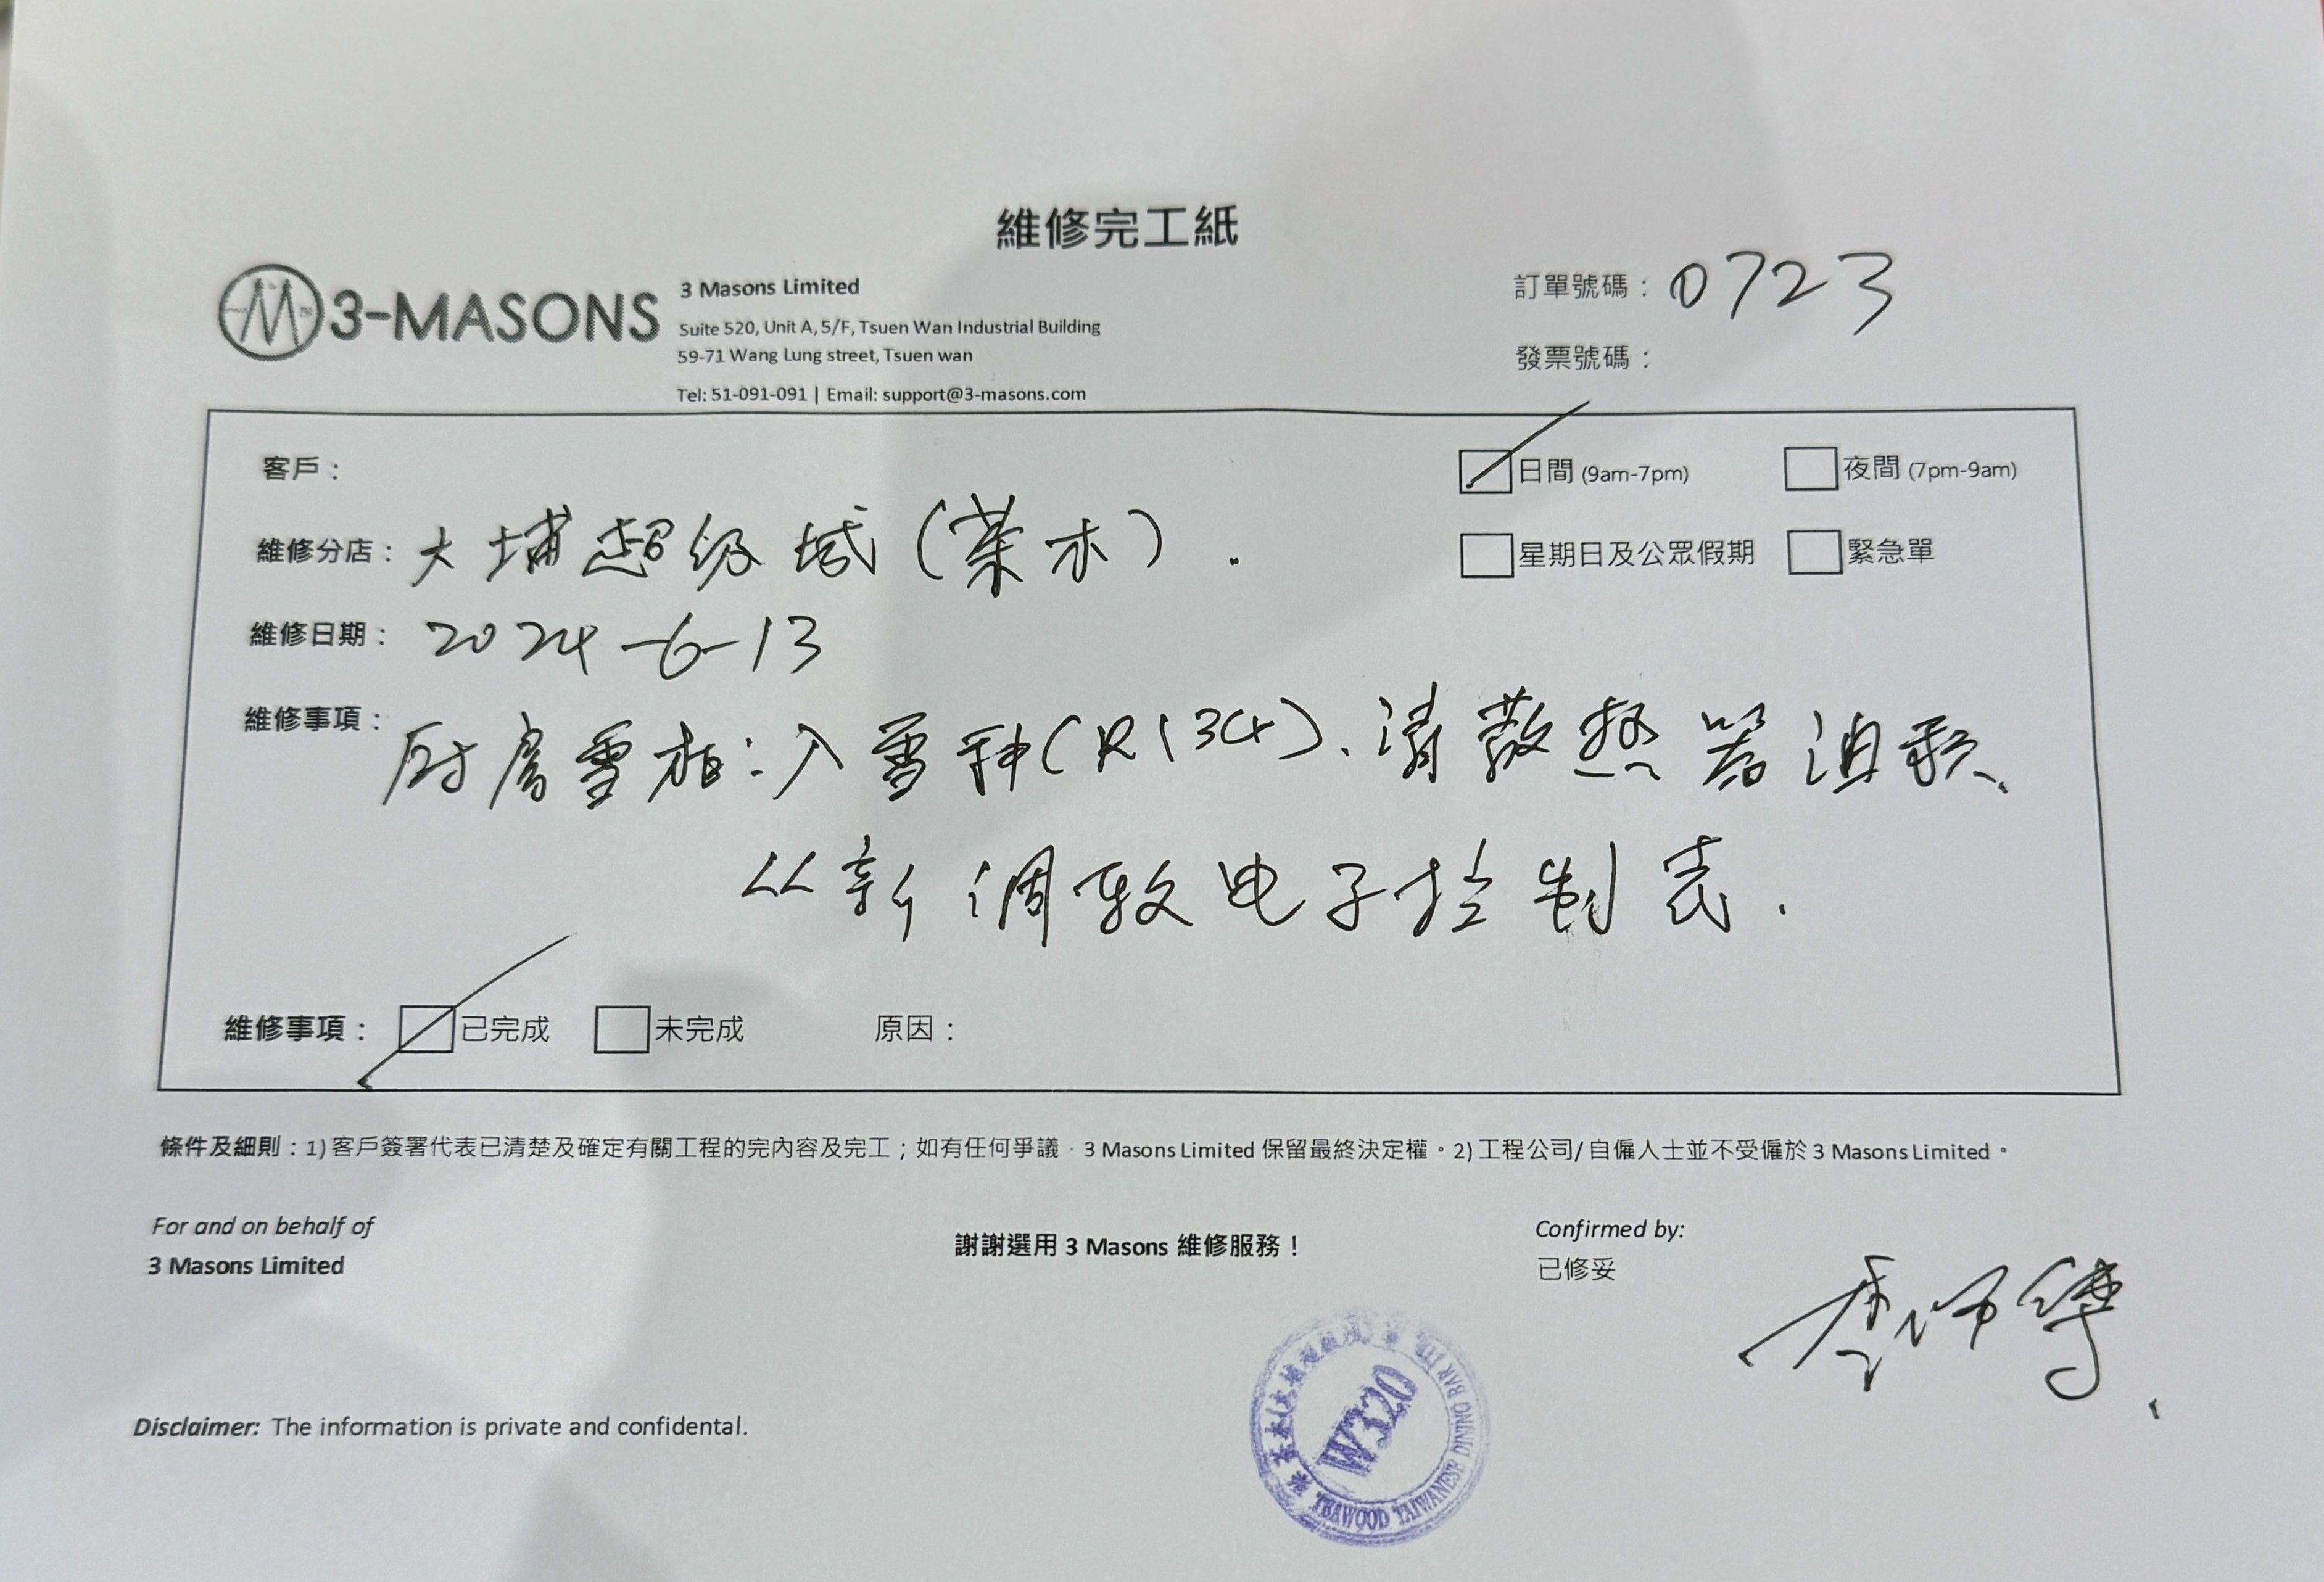 維修完工紙
3-MASONS
3 Masons Limited
Suite 520, Unit A, 5/F, Tsuen Wan Industrial Building
59-71 Wang Lung street, Tsuen wan
Tel: 51-091-091 | Email: support@3-masons.com
訂單號碼：0723
發票號碼：
客戶：
日間 (9am-7pm) 夜間 (7pm-9am)
維修分店：大埔超级城(茶木).
星期日及公眾假期 緊急單
維修日期：2024-6-13
維修事項：厨房雪柜:入雪种(R134)、清散热器油
从新调较电子控制表.
維修事項：已完成 未完成 原因：
條件及細則：1) 客戶簽署代表已清楚及確定有關工程的完內容及完工；如有任何爭議，3 Masons Limited 保留最終決定權。2) 工程公司/ 自僱人士並不受僱於 3 Masons Limited。
For and on behalf of
3 Masons Limited
謝謝選用 3 Masons 維修服務！
Confirmed by:
已修妥
李师傅
W320
TEAWOOD TAIWANESE DINING BAR LTD.
Disclaimer: The information is private and confidental.